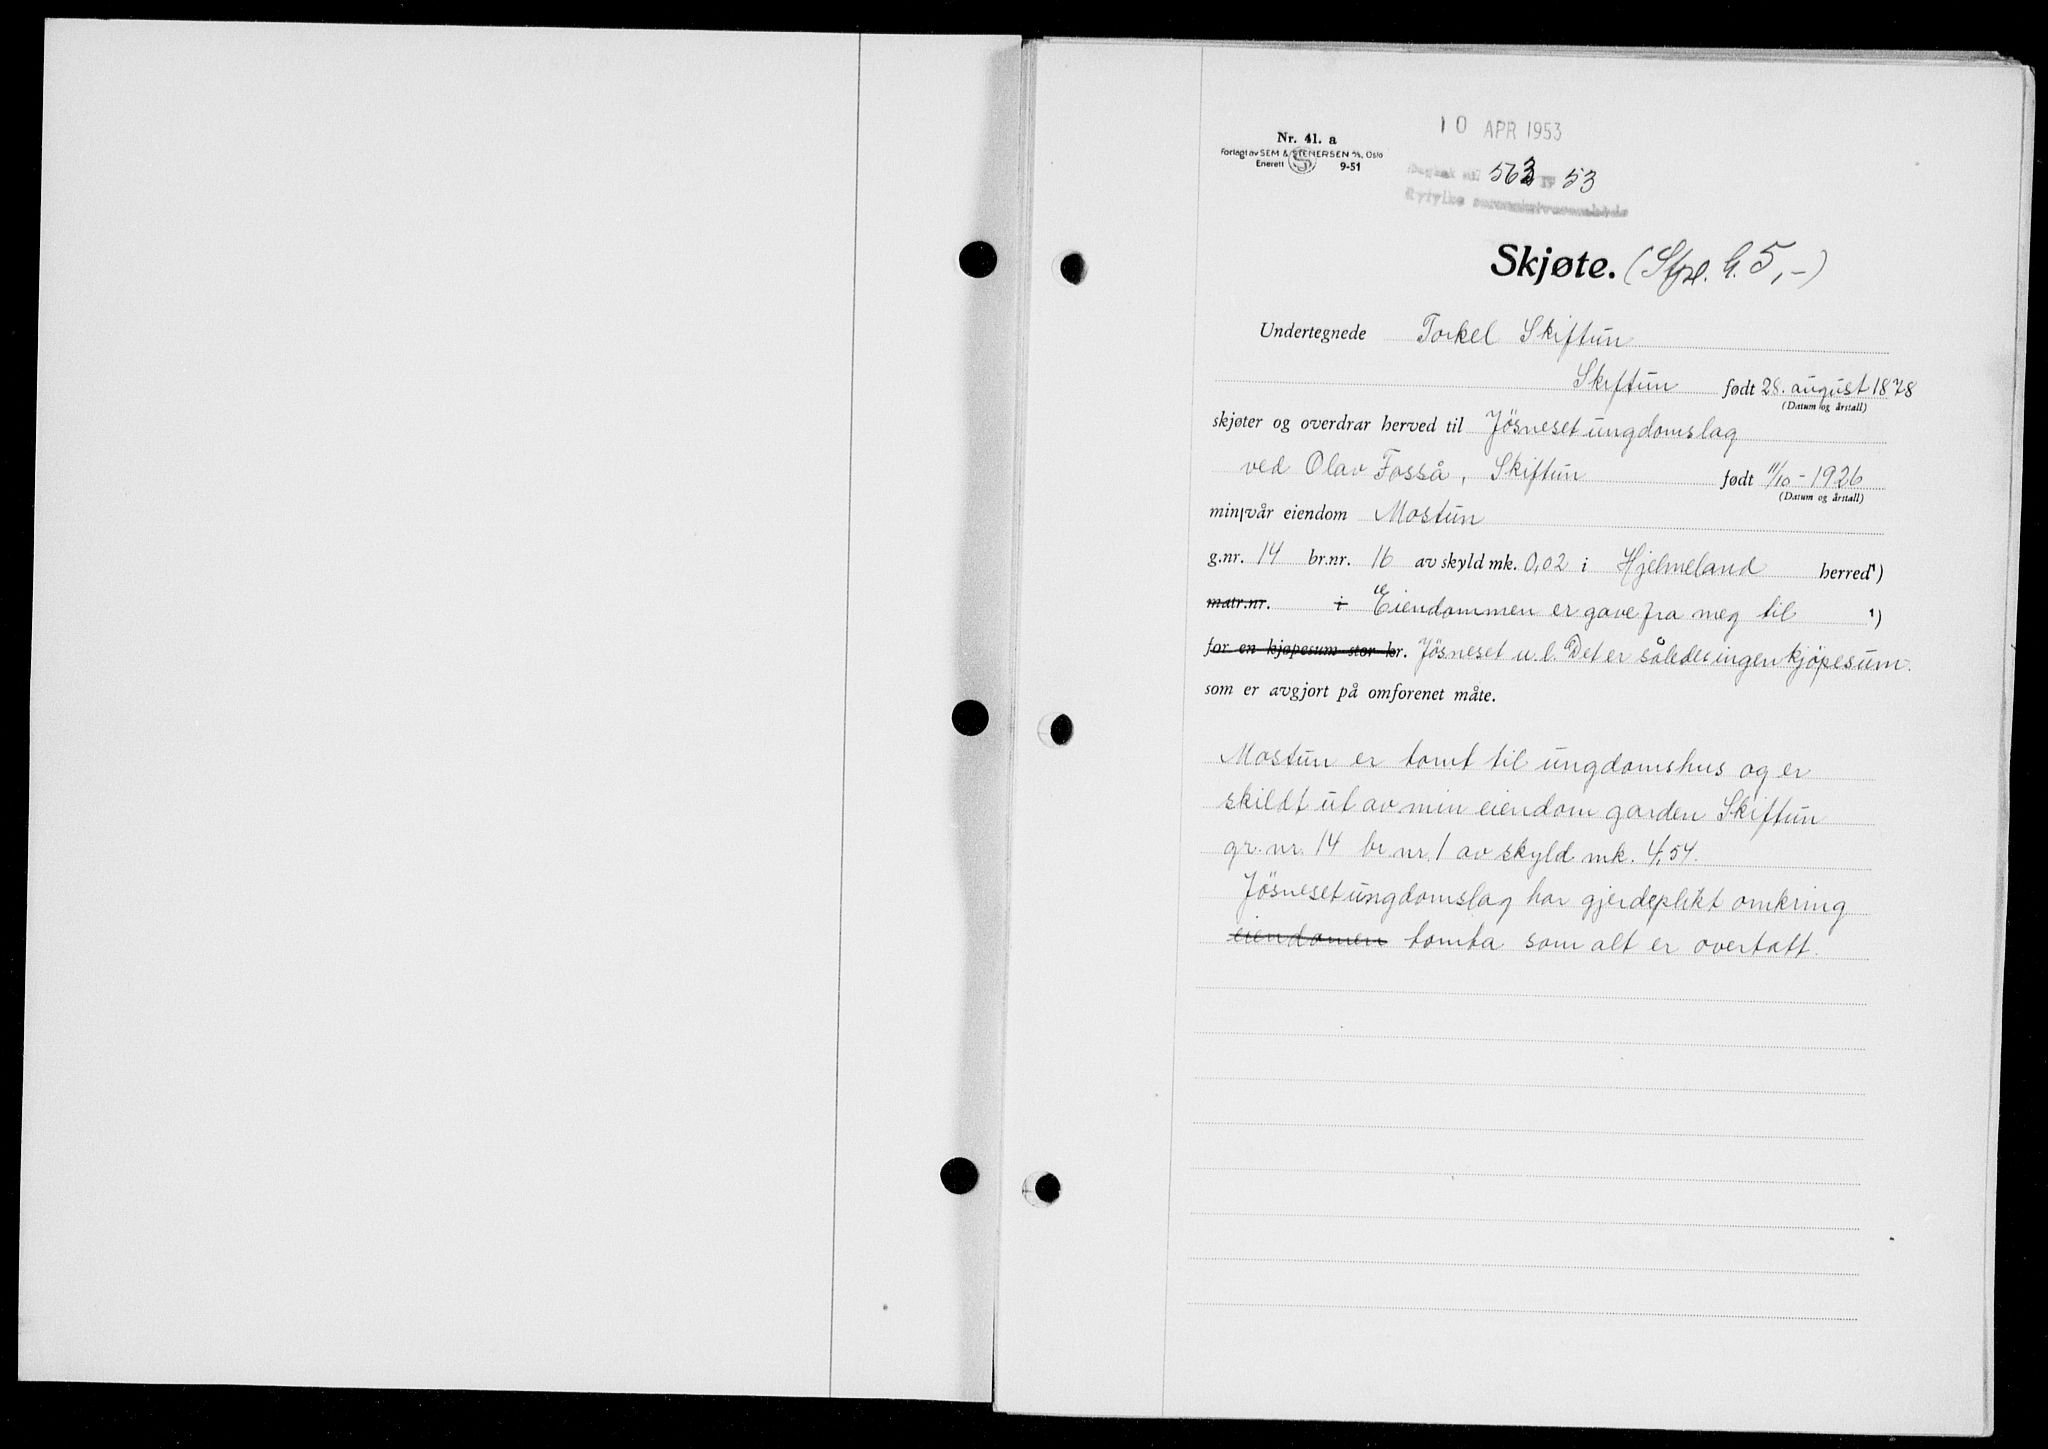 10 APR 1953
Nr. 41. a
Forlagt av SEM & STENERSEN A/S, Oslo
Enerett 9-51
Dagbok nr. 563 19 53
Ryfylke sorenskriverembede
Skjøte. (Stpl. kr. 5,-)
Undertegnede Torkel Skiftun
Skiftun født 28. august 1878
(Datum og årstall)
skjøter og overdrar herved til Jösneset ungdomslag
ved Olav Fosså, Skiftun født 11/10-1926
(Datum og årstall)
min/vår eiendom Mostun
g.nr. 14 br.nr. 16 av skyld mk. 0,02 i Hjelmeland herred¹)
matr.nr. i Eiendommen er gave fra meg til ¹)
for en kjøpesum stor kr. Jösneset u.l. Det er således ingen kjöpesum.
som er avgjort på omforenet måte.
Mostun er tomt til ungdomshus og er
skildt ut av min eiendom garden Skiftun
gr. nr. 14 br. nr. 1 av skyld mk. 4,54.
Jösneset ungdomslag har gjerdeplikt omkring
eiendomen tomta som alt er overtatt.